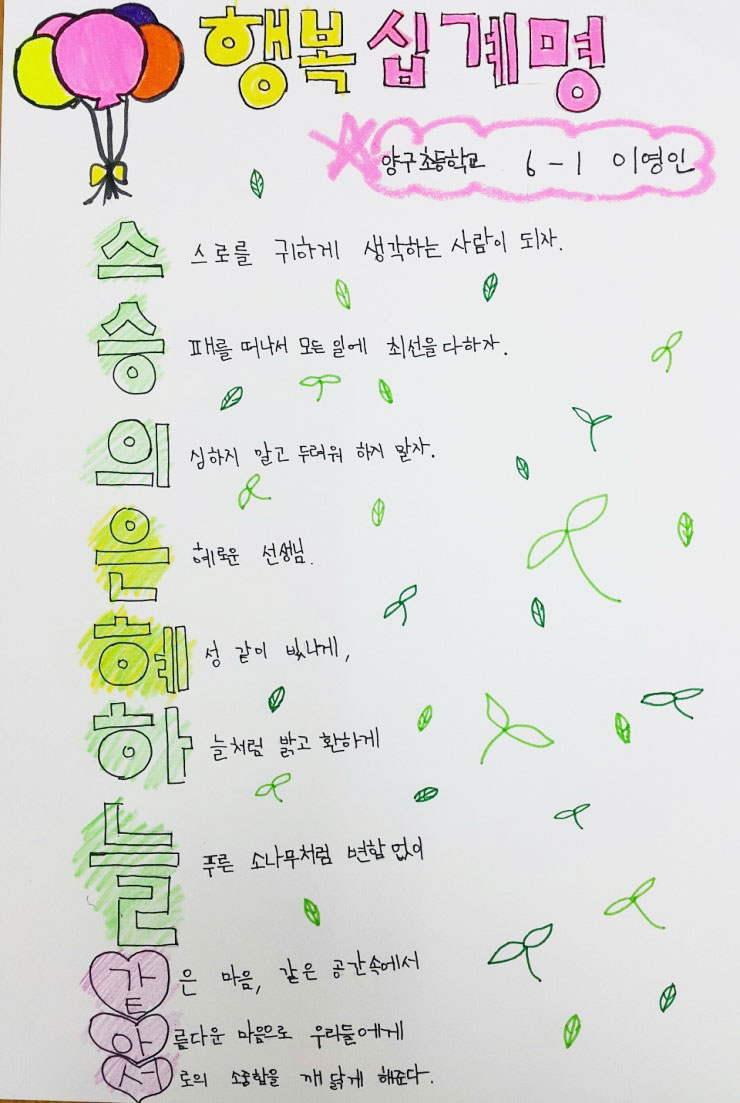 행복 십계명
양구초등학교 6-1 이영인
스스로를 귀하게 생각하는 사람이 되자.
승패를 떠나서 모든 일에 최선을 다하자.
의심하지 말고 두려워 하지 말자.
은혜로운 선생님.
혜성 같이 빛나게,
하늘처럼 밝고 환하게
늘푸른 소나무처럼 변함없이
같은 마음, 같은 공간속에서
아름다운 마음으로 우리들에게
서로의 소중함을 깨닳게 해준다.